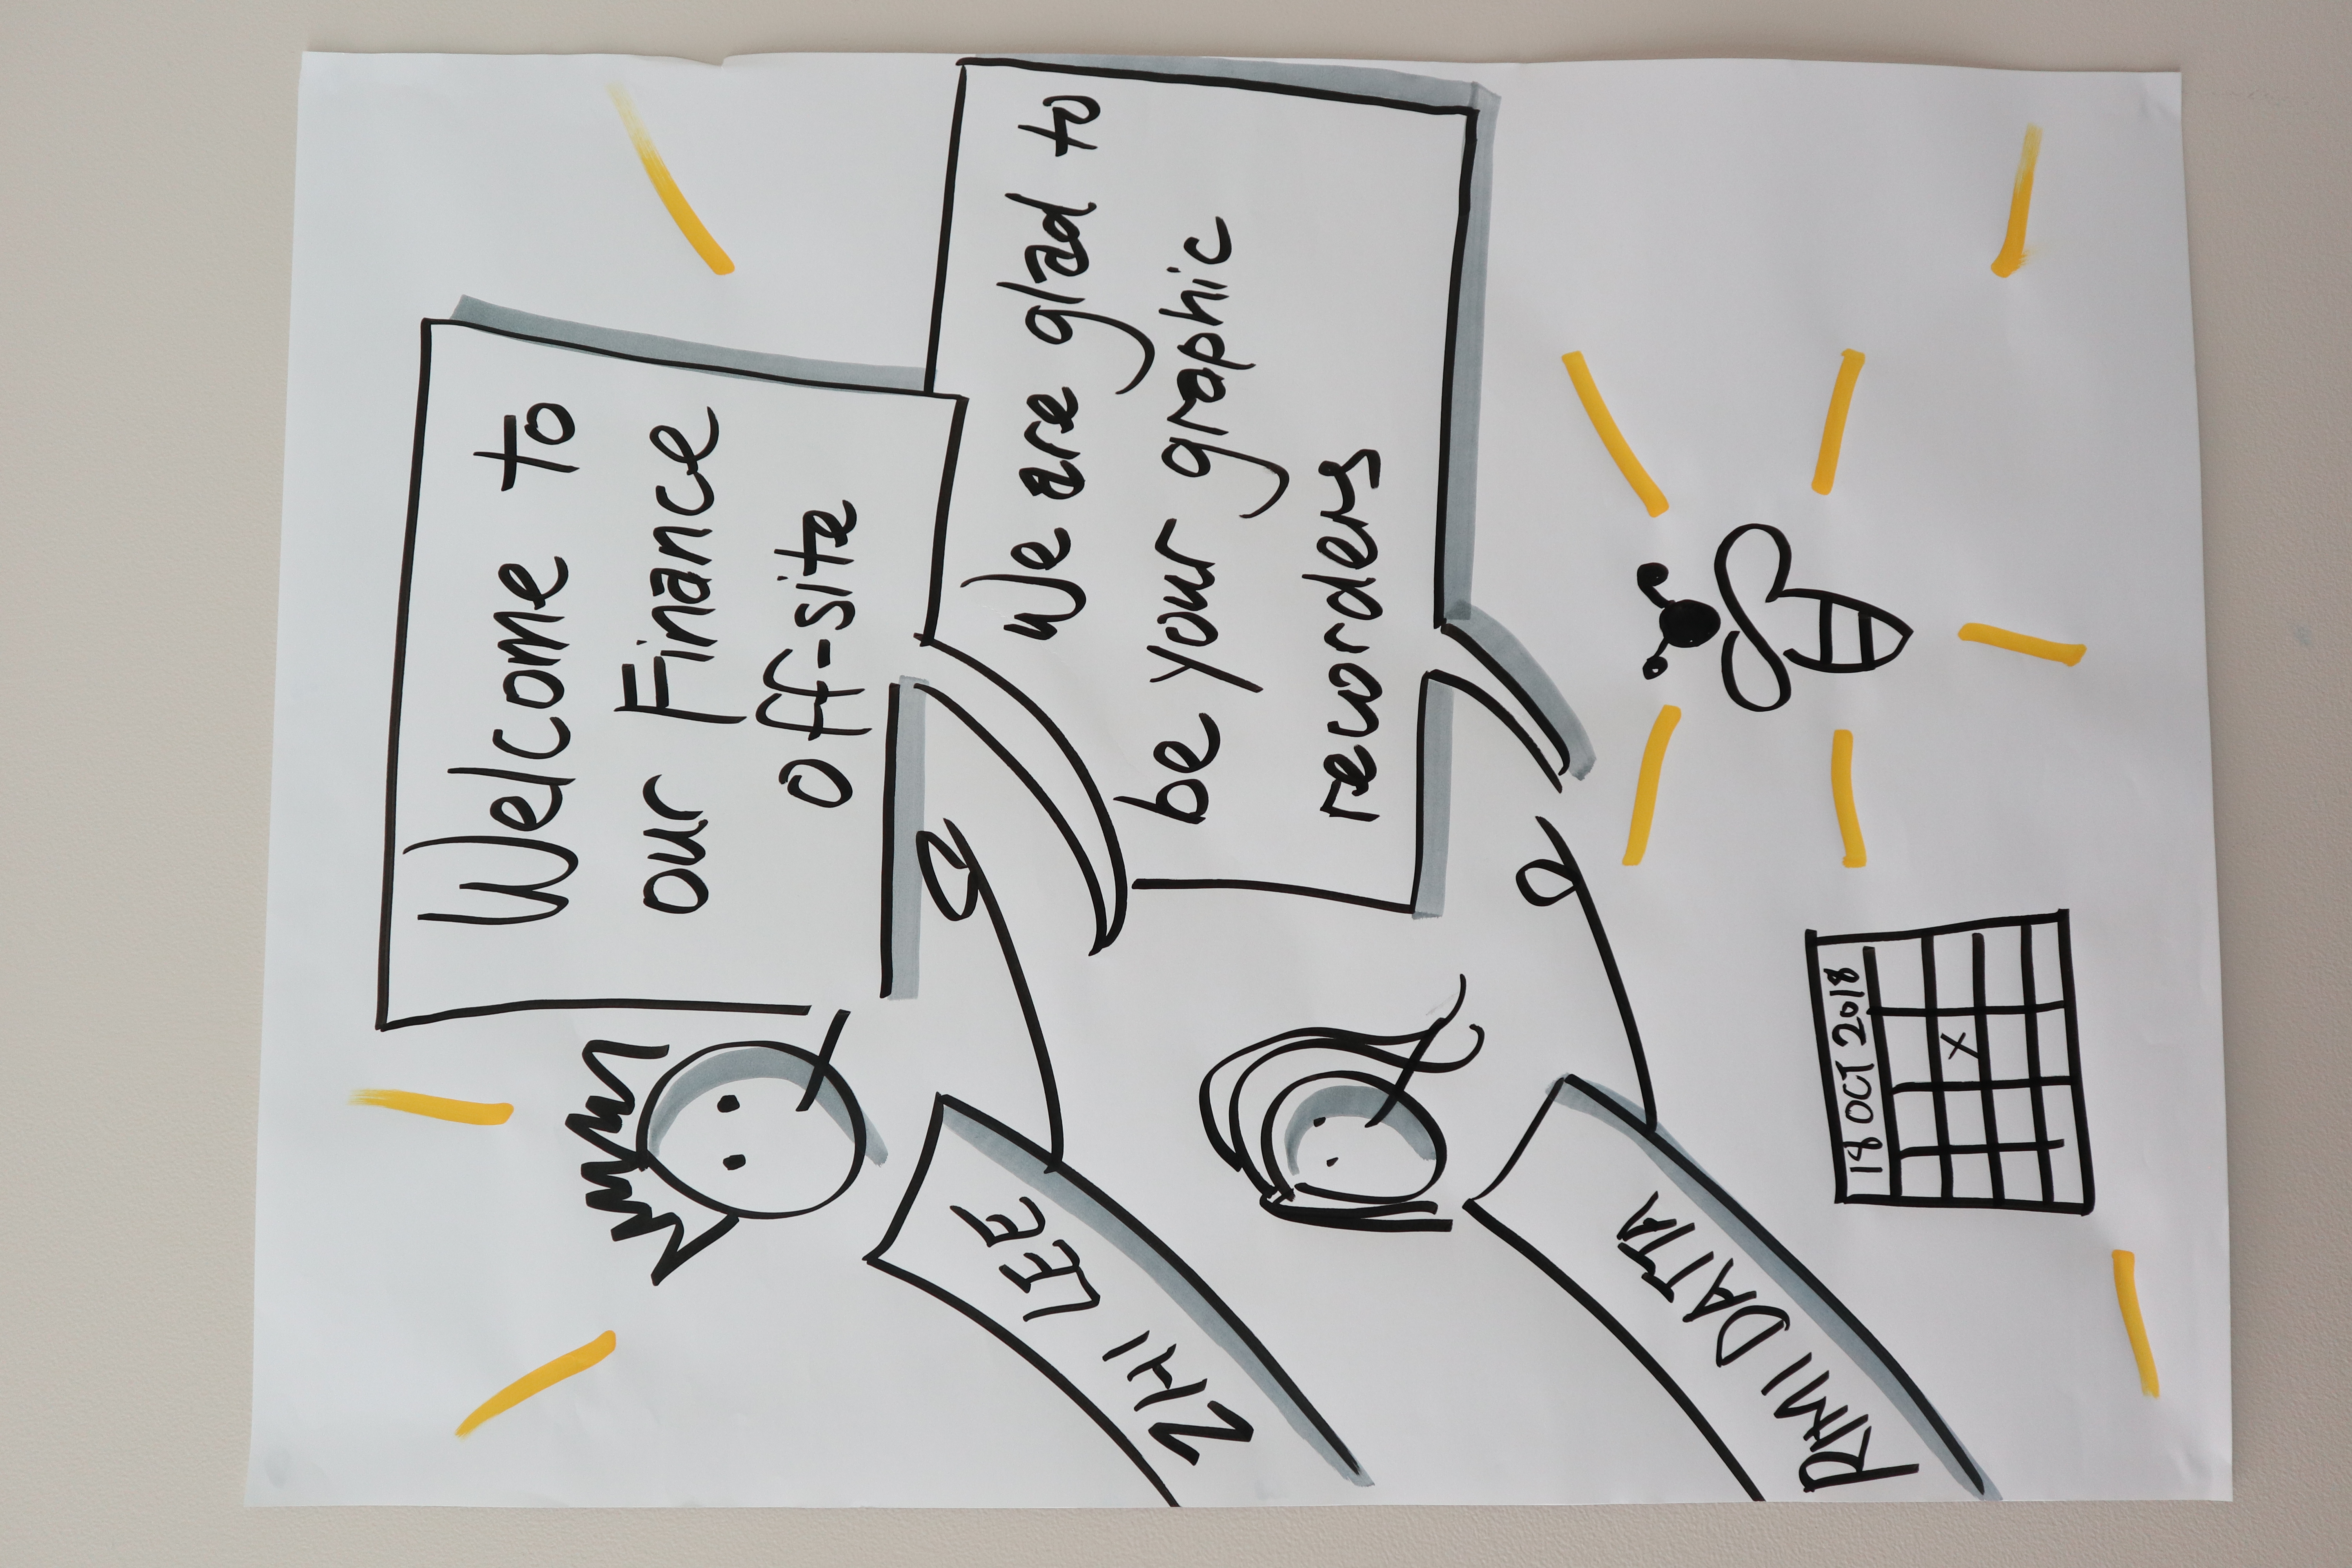 Welcome to
our Finance
off-site
We are glad to
be your graphic
recorders
ZHI LEE
RIMII DATTA
18 OCT 2018
X